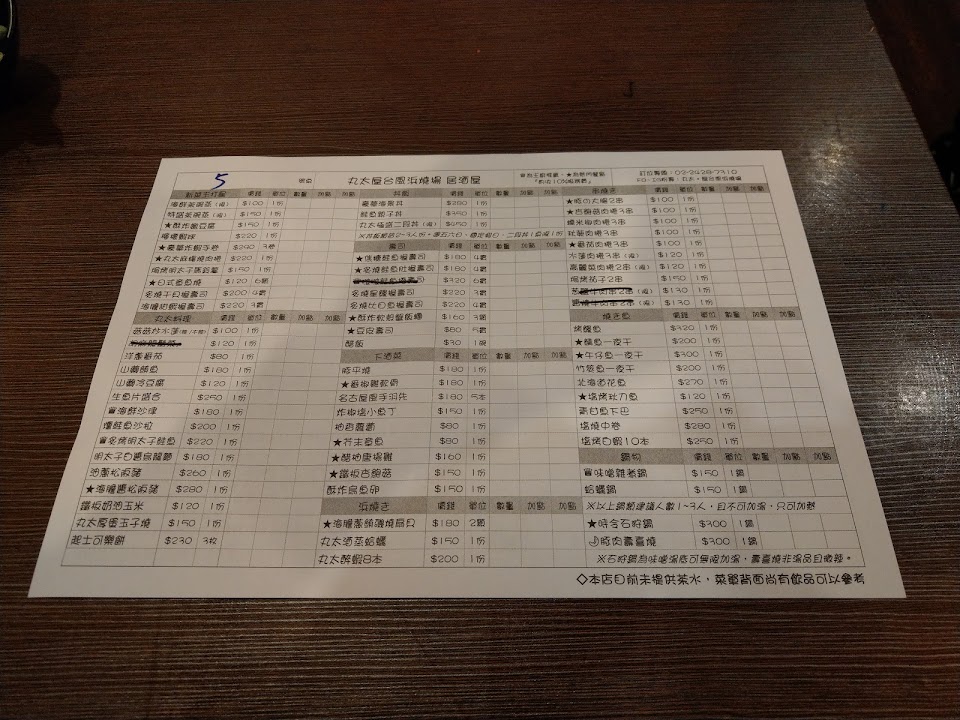 5 號桌 丸太屋台風浜燒場 居酒屋 訂位專線：02-2428-7310
價錢 單位 數量 加點 加點
海鮮茶碗蒸（複） $100 1份
特選茶碗蒸（複） $150 1份
★酥炸雞豆腐 $150 1份
$220 1份
★豪華炸蝦手卷 $290 3捲
★丸太麻糬燒肉捲 $220 1份
焗烤明太子馬鈴薯 $150 1份
★日式章魚燒 $120 6顆
炙燒干貝握壽司 $200 4顆
海膽甜蝦握壽司 $220 3貫
丸太料理 價錢 單位 數量 加點 加點
菇菇炒水蓮 $100 1份
$120 1份
洋蔥番茄 $80 1份
山藥鮪魚 $180 1份
山藥冷豆腐 $120 1份
生魚片拼盤 $250 1份
實海鮮沙律 $180 1份
燻鮭魚沙拉 $200 1份
實炙烤明太子鮭魚 $220 1份
明太子白醬烏龍麵 $180 1份
油蔥松阪豬 $260 1份
★海膽醬松阪豬 $280 1份
鐵板奶油玉米 $120 1份
丸太厚蛋玉子燒 $150 1份
起士可樂餅 $230 3枚
丼飯 價錢 單位 數量 加點 加點
豪華海膽丼 $280 1份
鮭魚親子丼 $350 1份
丸太極盛二段丼（複） $550 1份
壽司 價錢 單位 數量 加點 加點
★焦糖鮭魚握壽司 $180 4顆
★炙燒鮭魚肚握壽司 $220 4顆
$320 6顆
炙燒星鰻握壽司 $220 4顆
炙燒比目魚握壽司 $220 4顆
★酥炸軟殼蟹飯糰 $160 3顆
★豆皮壽司 $80 5顆
醋飯 $30 1碗
下酒菜 價錢 單位 數量 加點 加點
岐平燒 $180 1份
★椒椒雞軟骨 $180 1份
名古屋風手羽先 $180 5本
炸椒塩小魚丁 $150 1份
柚香蘿蔔 $80 1份
★芥末章魚 $80 1份
★醋柚唐揚雞 $160 1份
★鐵板杏鮑菇 $150 1份
酥炸烏魚卵 $150 1份
浜燒き 價錢 單位 數量 加點 加點
★海膽蔥鹽磯燒扇貝 $180 2顆
丸太酒蒸蛤蠣 $150 1份
丸太醉蝦8本 $200 1份
串燒き 價錢 單位 數量 加點 加點
★豚の大腸2串 $100 1份
★杏鮑菇肉捲3串 $100 1份
糯米椒肉捲3串 $100 1份
秋葵肉捲3串 $100 1份
★番茄肉捲3串 $100 1份
水蓮肉捲3串（複） $120 1份
高麗菜肉捲2串（複） $150 1份
焗烤茄子2串（複） $100 1份
蔥鹽牛肉串2串（複） $130 1份
醬燒牛肉串2串（複） $130 1份
燒き魚 價錢 單位 數量 加點 加點
烤鰻魚 $320 1份
★鯖魚一夜干 $200 1份
★午仔魚一夜干 $300 1份
竹筴魚一夜干 $200 1份
北海道花魚 $270 1份
★塩烤秋刀魚 $120 1份
青甘魚下巴 $250 1份
塩燒中卷 $280 1份
塩烤白蝦10本 $250 1份
鍋物 價錢 單位 數量 加點 加點
實味噌雞煮鍋 $150 1鍋
蛤蠣鍋 $150 1鍋
※以上鍋類建議人數1~3人，且不可加湯，只可加熱
★味噌石狩鍋 $300 1鍋
豚肉壽喜燒 $300 1鍋
※石狩鍋為味噌湯底可無限加湯，壽喜燒非湯品且微辣。
◇本店目前未提供茶水，菜單背面尚有飲品可以參考